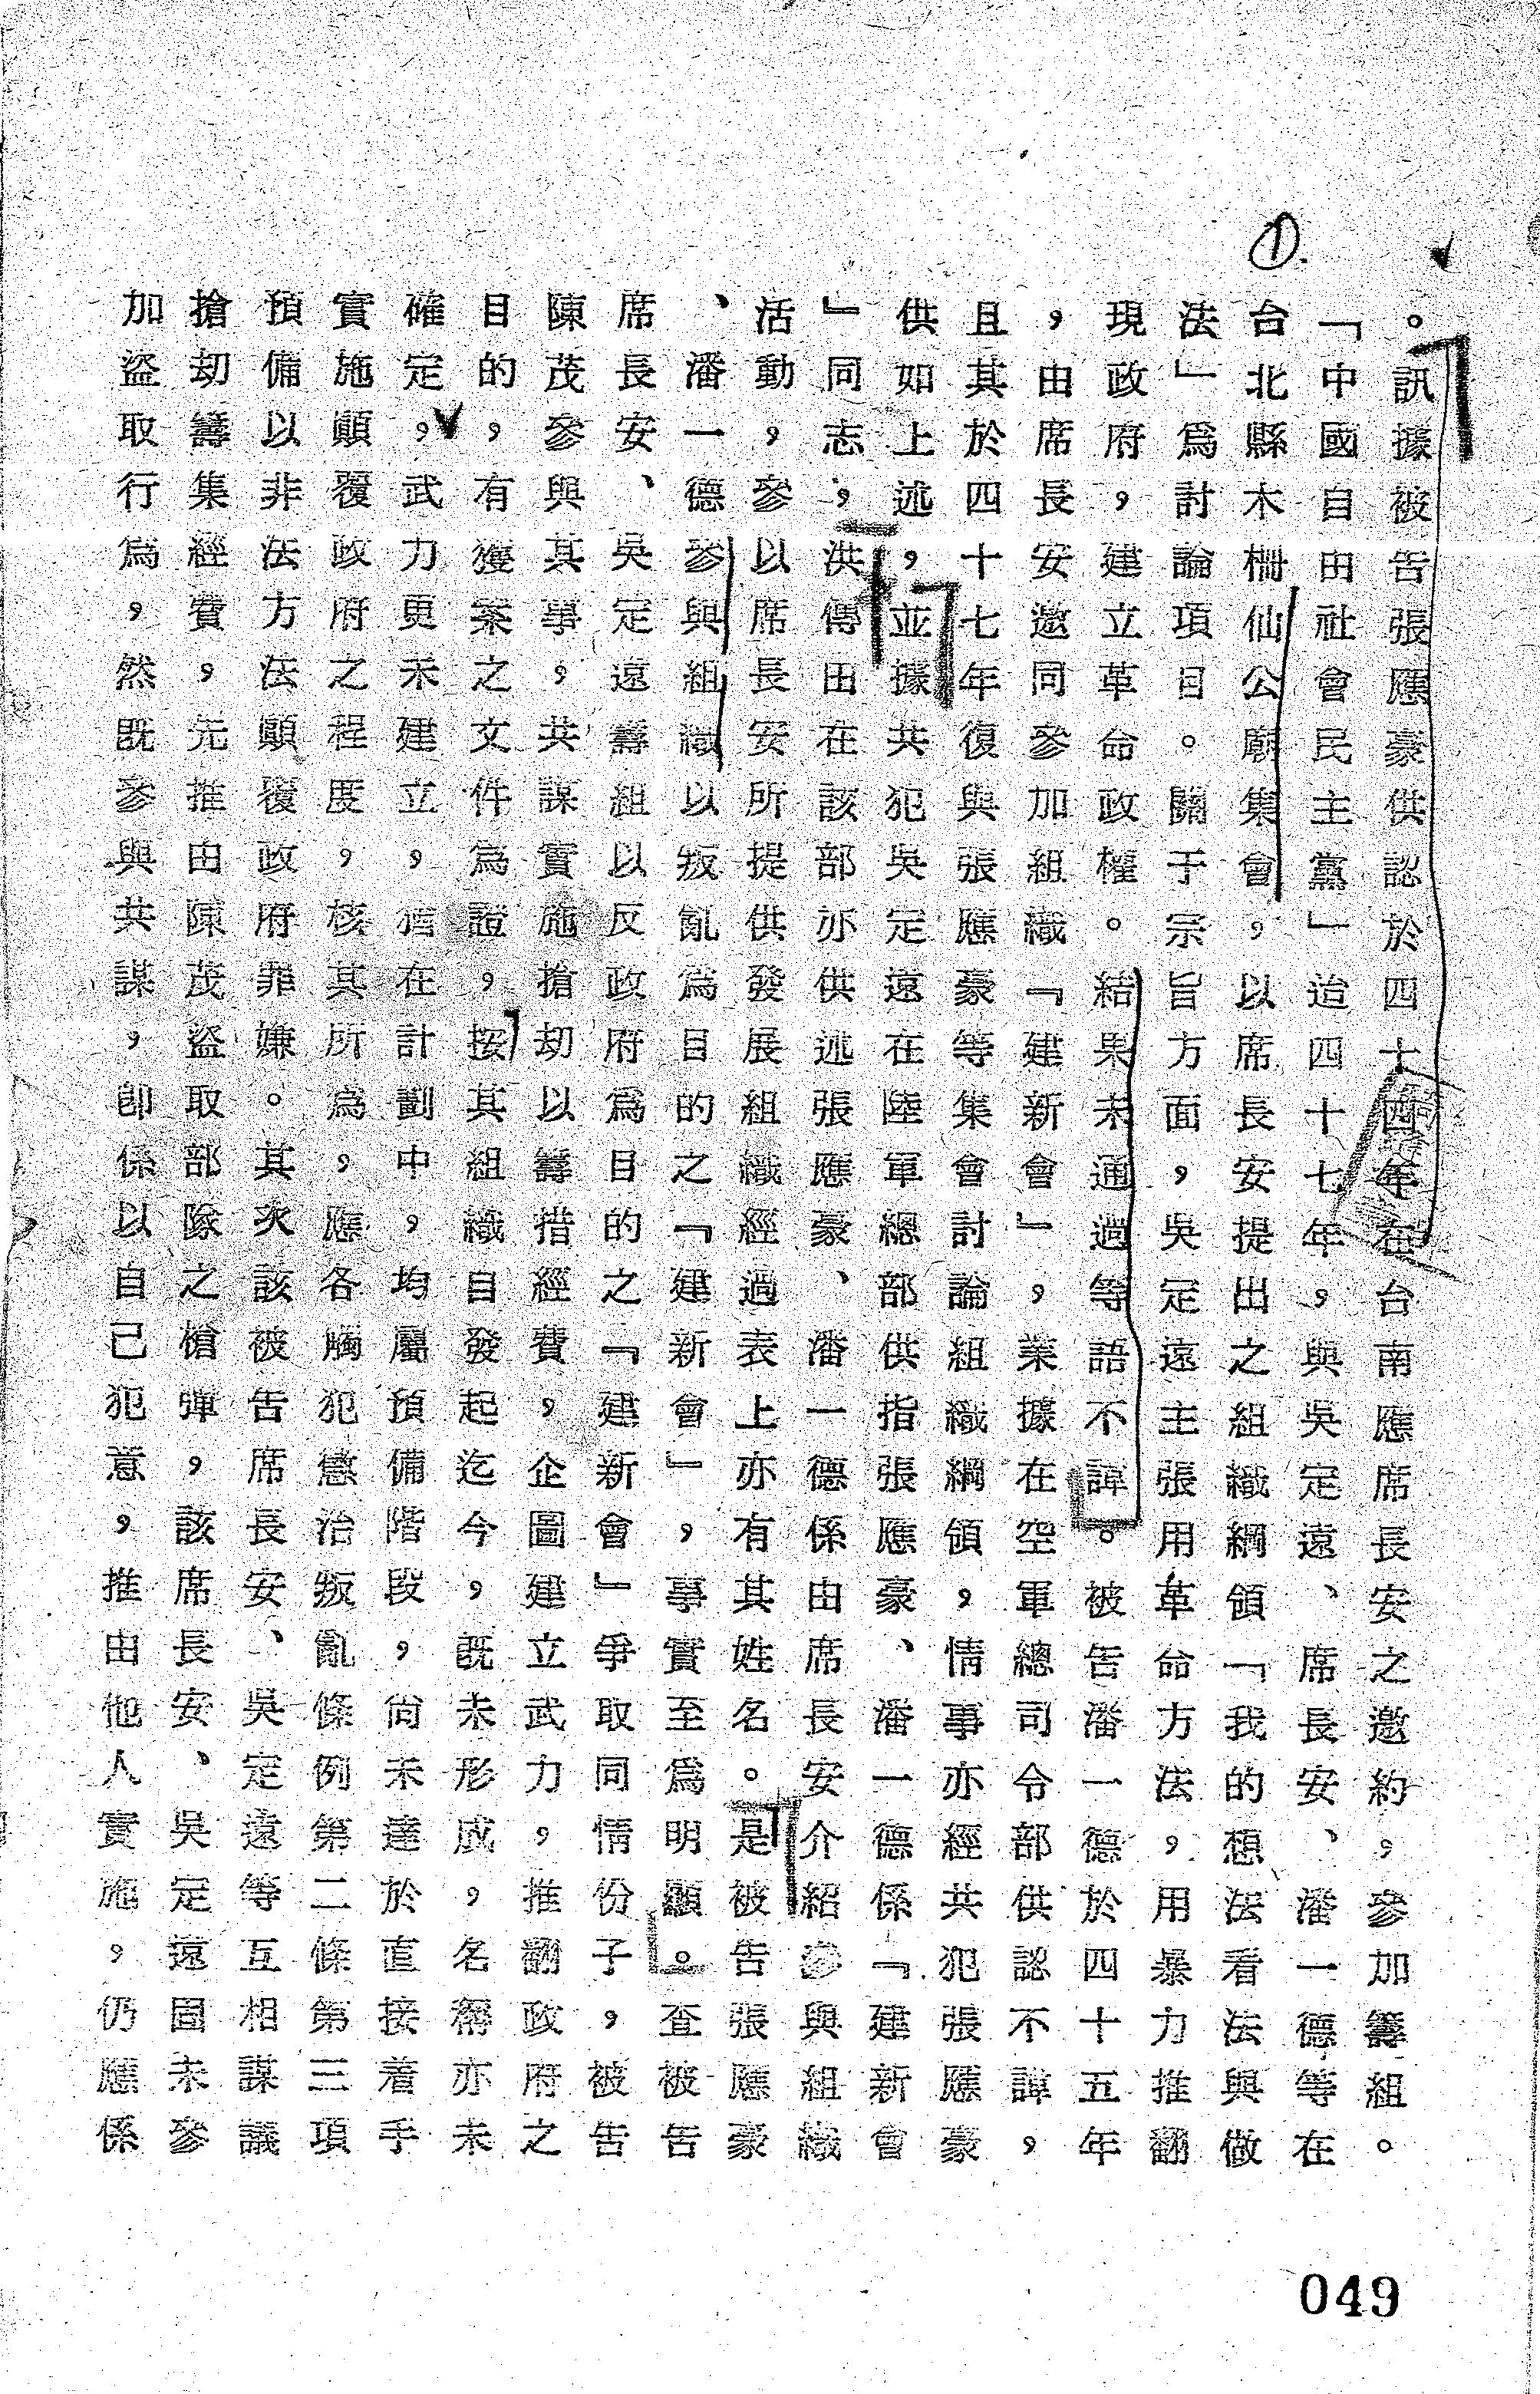 ①.
。訊據被告張應豪供認於四十四年在台南應席長安之邀約，參加籌組。
「中國自由社會民主黨」迨四十七年，與吳定遠、席長安、潘一德等在
台北縣木柵仙公廟集會，以席長安提出之組織綱領「我的想法看法與做
法」爲討論項目。關于宗旨方面，吳定遠主張用革命方法，用暴力推翻
現政府，建立革命政權。結果未通過等語不諱。被告潘一德於四十五年
，由席長安邀同參加組織『建新會』，業據在空軍總司令部供認不諱，
且其於四十七年復與張應豪等集會討論組織綱領，情事亦經共犯張應豪
供如上述，並據共犯吳定遠在陸軍總部供指張應豪、潘一德係『建新會
』同志，洪傳田在該部亦供述張應豪、潘一德係由席長安介紹參與組織
活動，參以席長安所提供發展組織經過表上亦有其姓名。是被告張應豪
、潘一德參與組織以叛亂爲目的之『建新會』，事實至爲明顯。查被告
席長安、吳定遠籌組以反政府爲目的之『建新會』爭取同情份子，被告
陳茂參與其事，共謀實施搶劫以籌措經費，企圖建立武力，推翻政府之
目的，有獲案之文件爲證，按其組織自發起迄今，既未形成，名稱亦未
確定，武力更未建立，猶在計劃中，均屬預備階段，尙未達於直接着手
實施顚覆政府之程度，核其所爲，應各觸犯懲治叛亂條例第二條第三項
預備以非法方法顚覆政府罪嫌。其次該被告席長安、吳定遠等互相謀議
搶劫籌集經費，先推由陳茂盜取部隊之槍彈，該席長安、吳定遠固未參
加盜取行爲，然既參與共謀，卽係以自己犯意，推由他人實施，仍應係
049